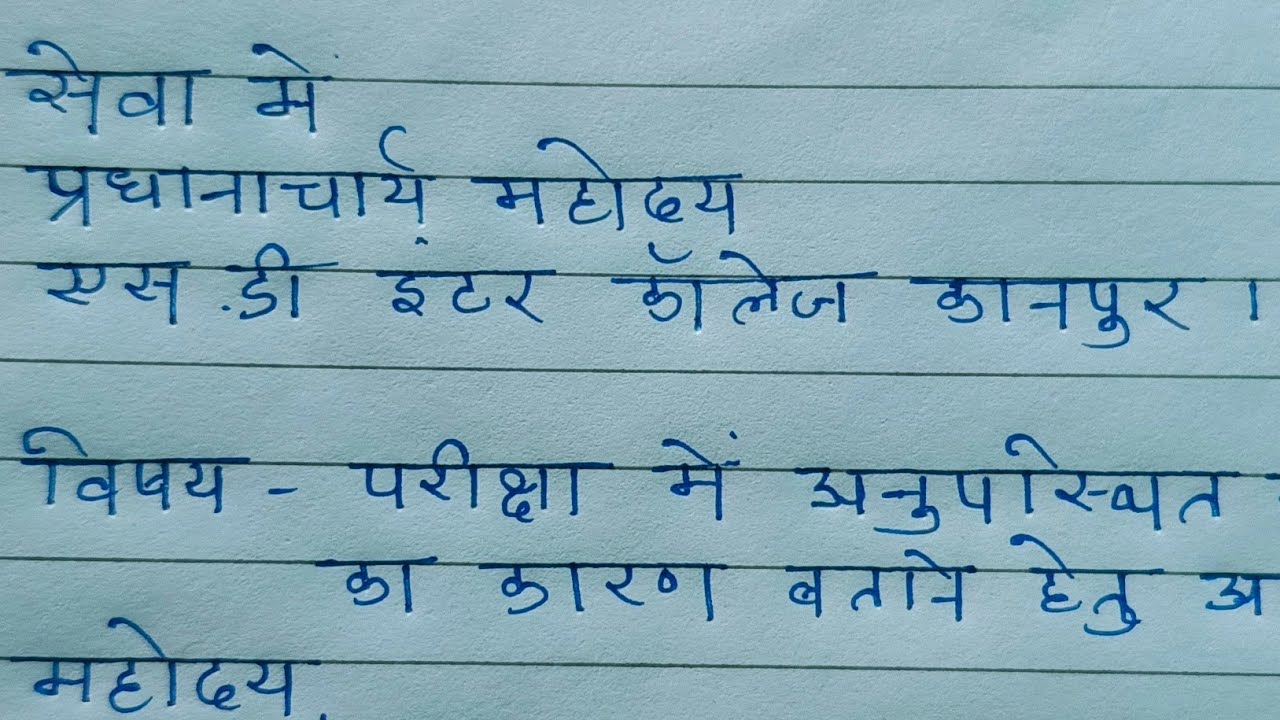 सेवा में
प्रधानाचार्य महोदय
एस.डी इंटर कॉलेज कानपुर ।
विषय - परीक्षा में अनुपस्थित
का कारण बताने हेतु अ
महोदय,